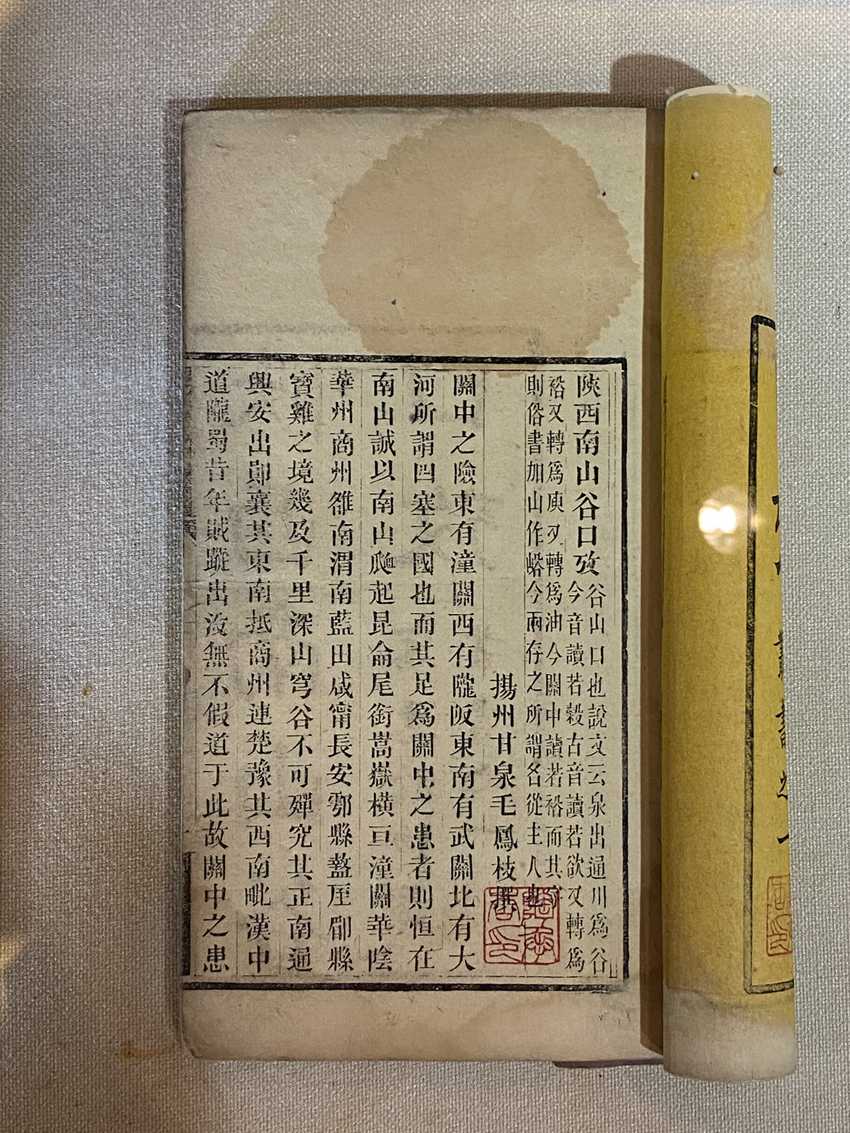 陝西南山谷口攷
谷山口也說文云泉出通川爲谷
今音讀若穀古音讀若欲又轉爲
裕又轉爲庾又轉爲油今關中讀若裕而其字
則俗書加山作峪今兩存之所謂名從主人也
揚州甘泉毛鳳枝撰
關中之險東有潼關西有隴阪東南有武關北有大
河所謂四塞之國也而其足爲關中之患者則恒在
南山誠以南山𨑳起昆侖尾銜嵩嶽橫亘潼關華陰
華州商州雒南渭南藍田咸甯長安鄠縣盩厔郿縣
寶雞之境幾及千里深山穹谷不可殫究其正南通
興安出鄖襄其東南抵商州連楚豫其西南毗漢中
道隴蜀昔年賊蹤出沒無不假道于此故關中之患